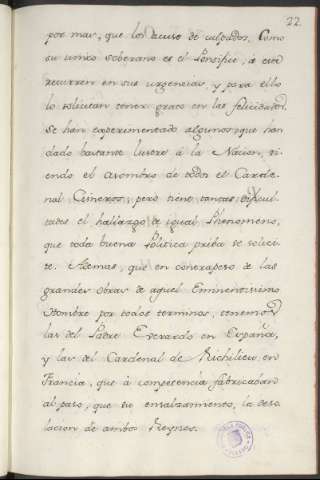 22.
por mas, que los acuse de culpados. Como
su unico soberano es el Pontifice, á este
recurren en sus urgencias, y para ello
lo solicitan tener grato en las felicidades.
Se hán experimentado algunos, que han
dado bastante lustre á la Nacion, si-
endo el asombro de todos el Carde-
nal Cisneros; pero tiene tantas dificul-
tades el hallazgo de igual Phenomeno,
que toda buena Politica priba se solici-
te. Ademas, que en contrapeso de las
grandes obras de aquel Eminentissimo
Hombre por todos terminos, tenemos
las del Padre Everardo en España,
y las del Cardenal de Richilieu en
Francia, que á competencia fabricaban
al paso, que su ensalzamiento, la deso
lacion de ambos Reynos.